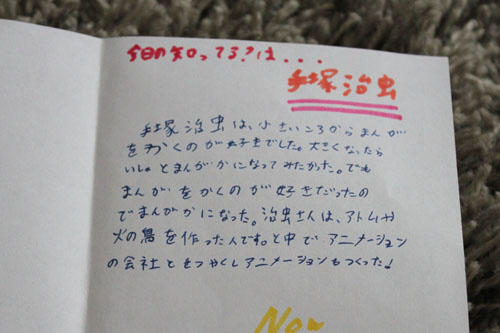 今日の知ってる?は...
手塚治虫
手塚治虫は、小さいころからまんが
をかくのが好きでした。大きくなったら
いしゃとまんがかになってみたかった。でも
まんがをかくのが好きだったの
でまんがかになった。治虫さんは、アトムや
火の鳥を作った人です。と中でアニメーション
の会社ともつやくしアニメーションもつくった♪
Now